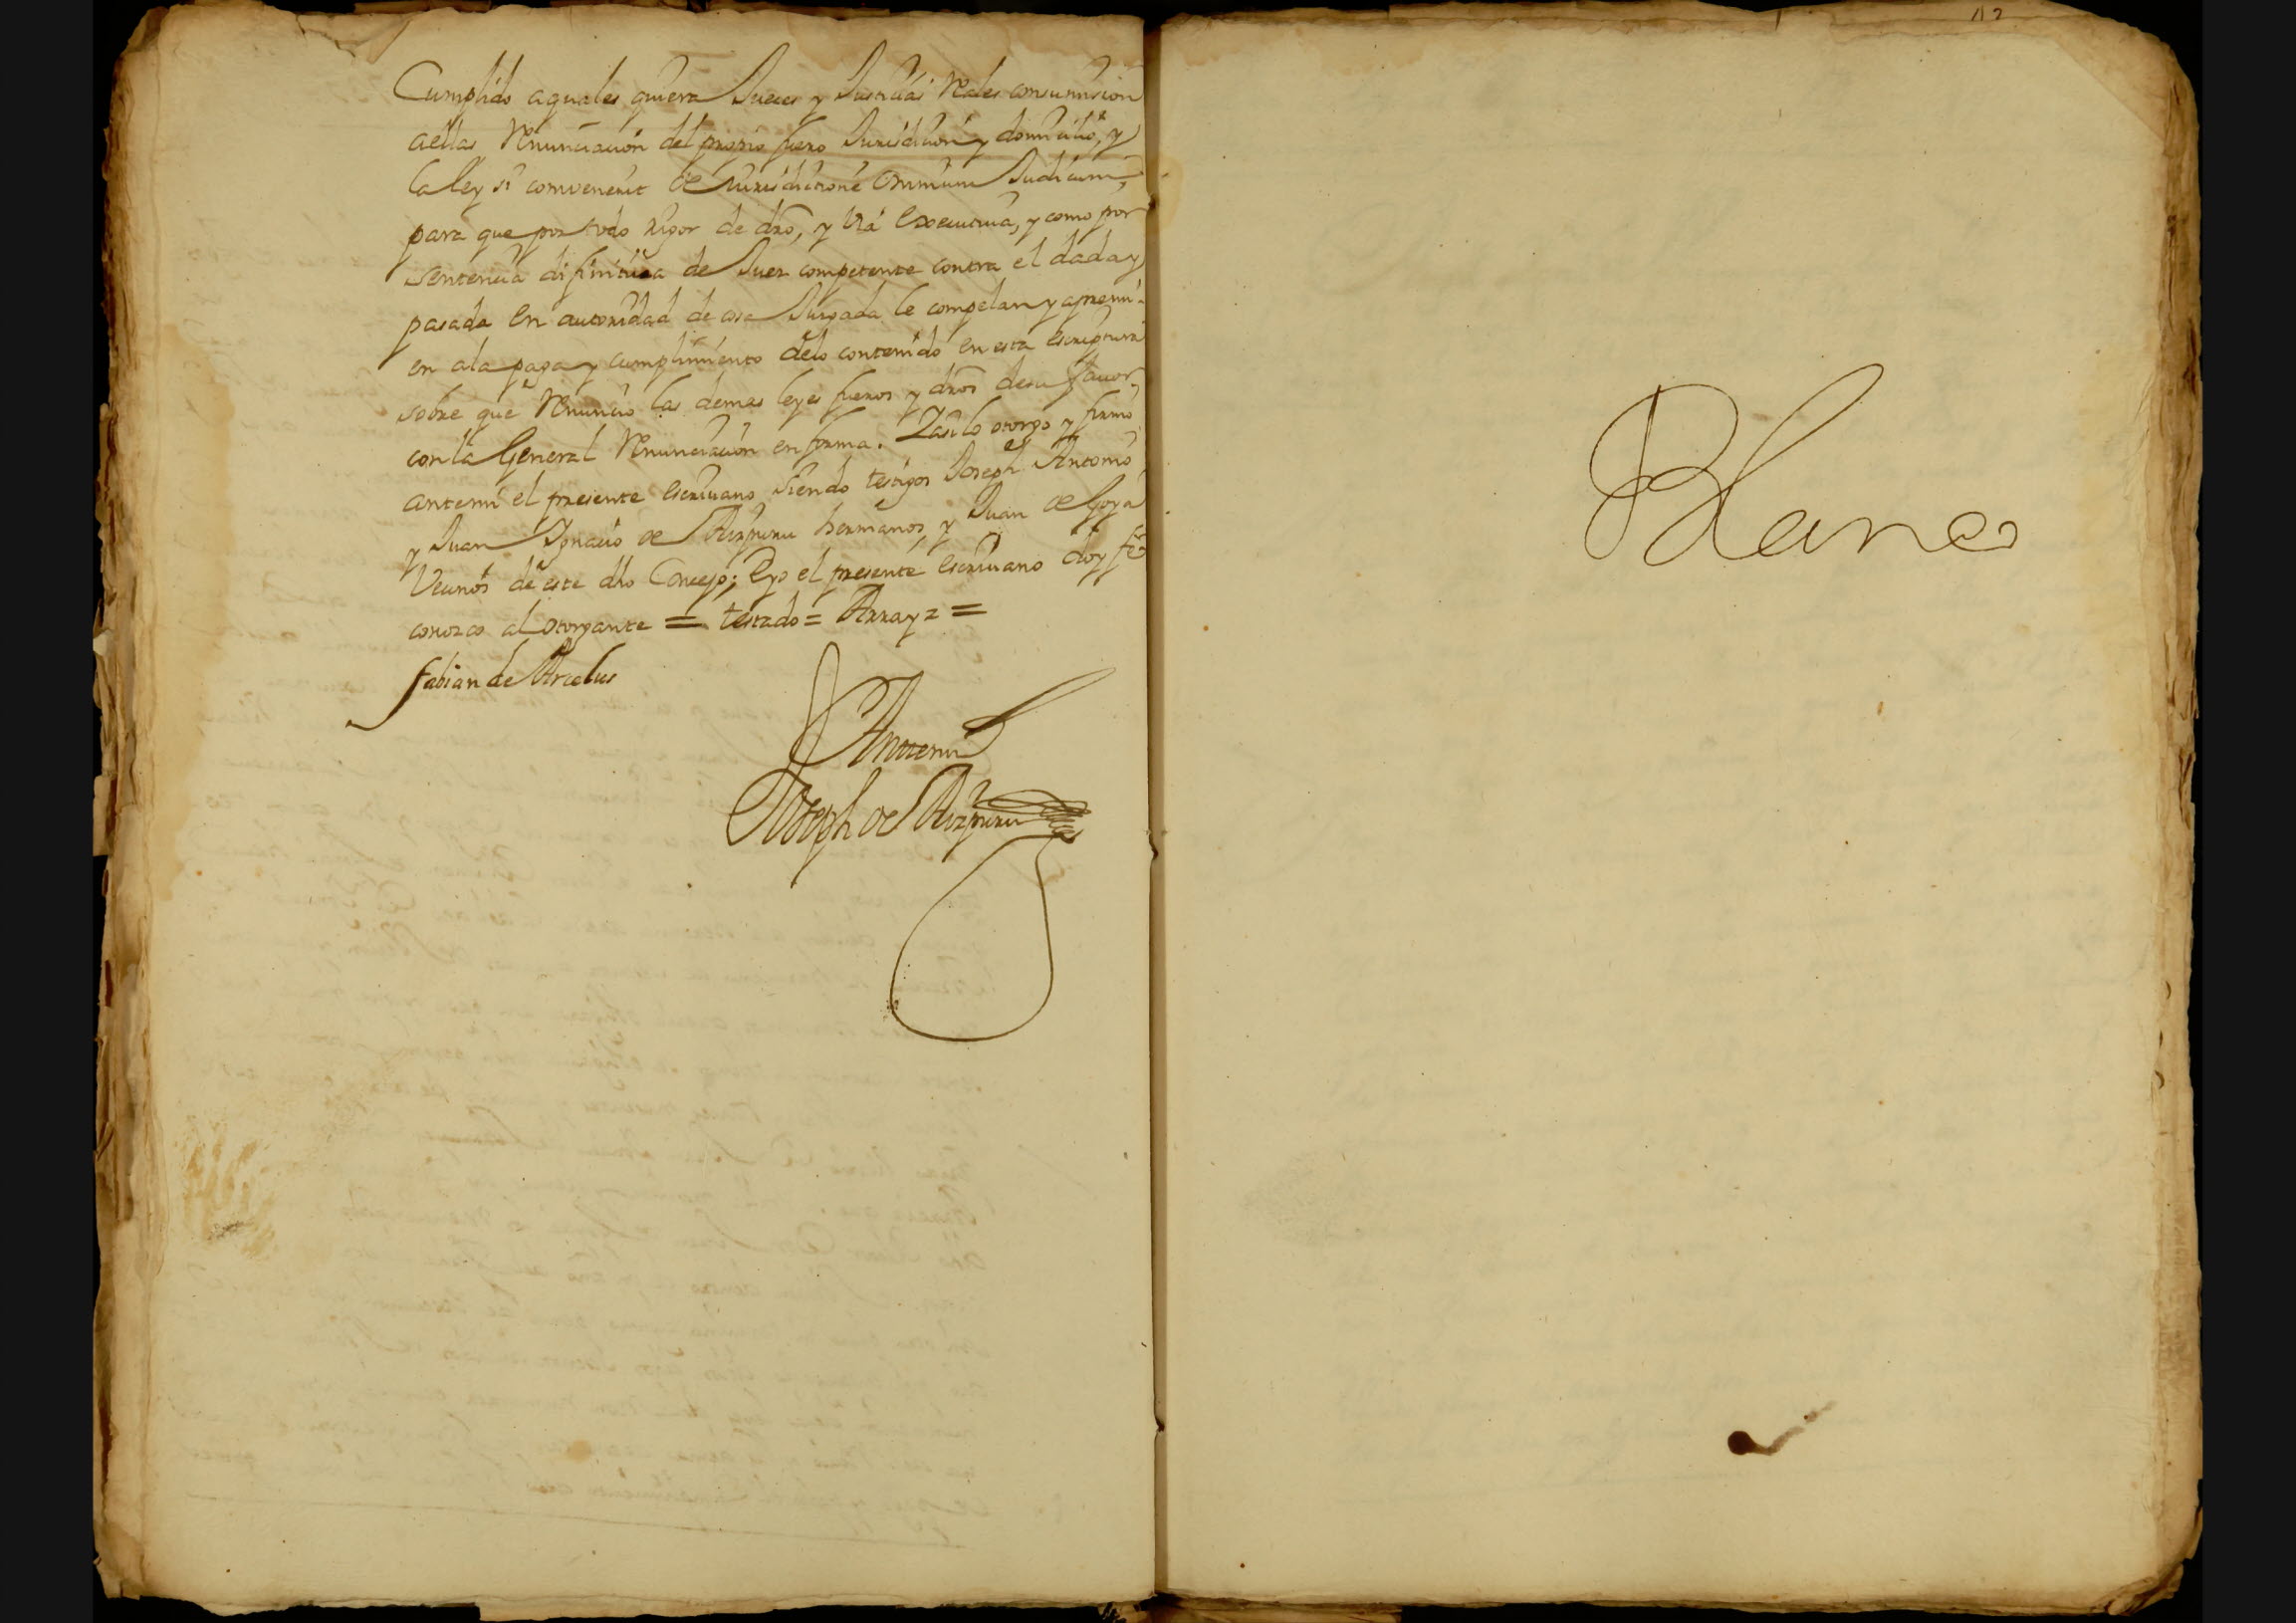 Cumplido a quales quiera Jueces y Justicias Reales con sumission
aellas Renunciacion del propio fuero Jurisdicion y domicilio, y
la ley si convenerit de Jurisdictione Omnium Judicum,
para que por todo rigor de dro, y via Executiva, y como por
sentencia difinitiva de Juez competente contra el dada y
pasada en autoridad de cosa Jusgada le compelan y apremi-
en ala paga y cumplimiento delo contenido en esta escriptura
sobre que Renuncio las demas leyes fueros y dros desu favor,
con la General Renunciacion en forma. Y asi lo otorgo y firmo
antemi el presente escrivano siendo testigos Joseph Antonio
y Juan Ignacio de Aizpuru hermanos, y Juan de Goya
Vecinos de este dho Concejo; E yo el presente escrivano doy fee
conozco al otorgante = testado = Array z =
fabian de Arcelus
Anttemi
Joseph de Aizpuru
Blanco